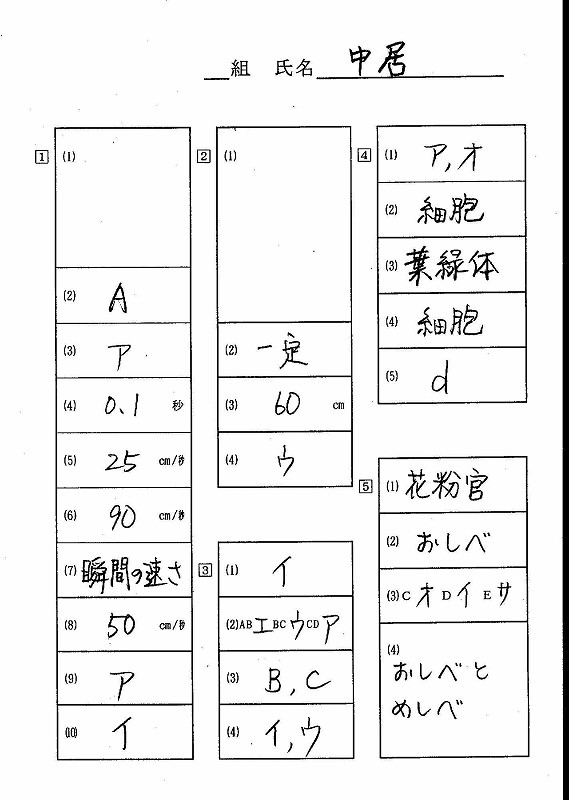 組 氏名 中居
1
(1)
(2) A
(3) ア
(4) 0.1 秒
(5) 25 cm/秒
(6) 90 cm/秒
(7) 瞬間の速さ
(8) 50 cm/秒
(9) ア
(10) イ
2
(1)
(2) 一定
(3) 60 cm
(4) ウ
3
(1) イ
(2) AB エ BC ウ CD ア
(3) B, C
(4) イ, ウ
4
(1) ア, オ
(2) 細胞
(3) 葉緑体
(4) 細胞
(5) d
5
(1) 花粉官
(2) おしべ
(3) C オ D イ E サ
(4)
おしべと
めしべ